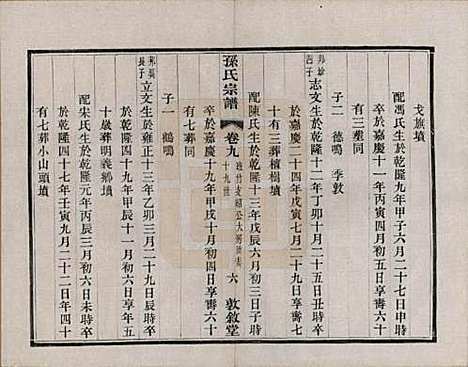 戈旗墳
配馮氏生於乾隆九年甲子六月二十七日申時
卒於嘉慶十一年丙寅九月初六日享壽六十
有三葬同
子二 德鳴 季敦
志文生於乾隆十二年丁卯十月二十五日丑時卒
於嘉慶二十四年戊寅七月二十九日享壽七
十有三葬檀樹墳
配陳氏生於乾隆十三年戊辰六月初三日子時
卒於嘉慶十九年甲戌十月初六日享壽六十
有七葬同
孫氏宗譜
卷九
十九世
六 敦敘堂
子一 鶴鳴
長子
立文生於雍正十三年乙卯三月二十九日辰時卒
於乾隆四十九年甲辰十一月初六日享年五
十歲葬明義鄉墳
配宋氏生於乾隆元年丙辰三月初六日未時卒
於乾隆四十七年壬寅九月二十二日年四十
有七葬小山頭墳